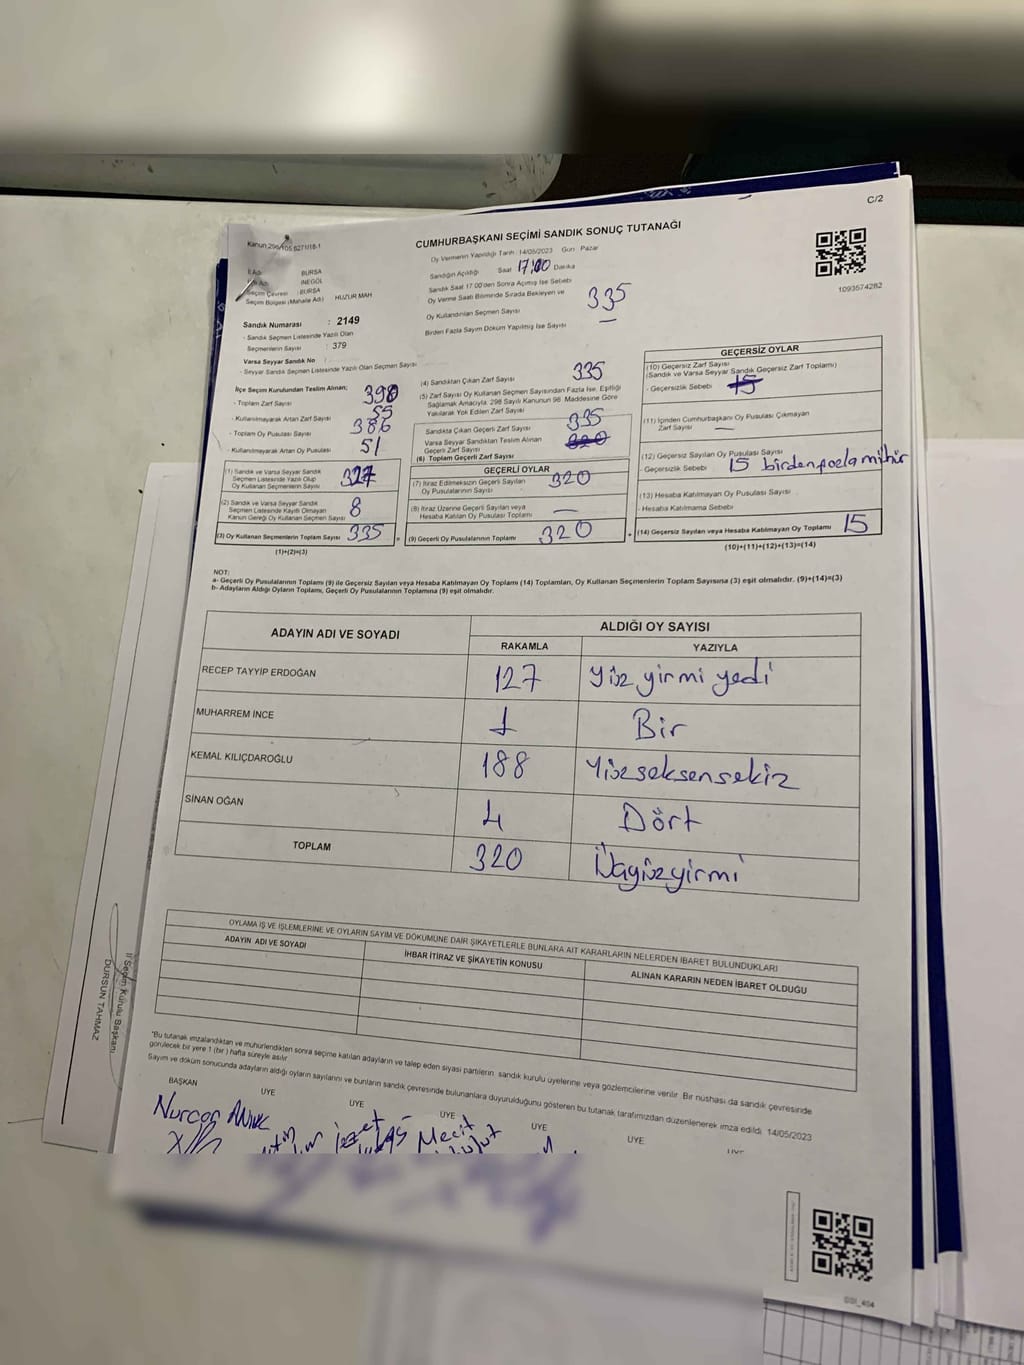 C/2
Kanun 298/105 6271/18-1
CUMHURBAŞKANI SEÇİMİ SANDIK SONUÇ TUTANAĞI
Oy Vermenin Yapıldığı Tarih : 14/05/2023 Gün : Pazar
İl Adı : BURSA
İlçe Adı : İNEGÖL
Seçim Çevresi : BURSA
Seçim Bölgesi (Mahalle Adı) HUZUR MAH
Sandığın Açıldığı Saat 17:00 Dakika
Sandık Saat 17:00'den Sonra Açılmış İse Sebebi
Oy Verme Saati Bitiminde Sırada Bekleyen ve
Oy Kullandırılan Seçmen Sayısı 335
Birden Fazla Sayım Döküm Yapılmış İse Sayısı —
1093574282
Sandık Numarası : 2149
- Sandık Seçmen Listesinde Yazılı Olan
Seçmenlerin Sayısı : 379
Varsa Seyyar Sandık No :
- Seyyar Sandık Seçmen Listesinde Yazılı Olan Seçmen Sayısı
İlçe Seçim Kurulundan Teslim Alınan;
- Toplam Zarf Sayısı 390
- Kullanılmayarak Artan Zarf Sayısı 55
- Toplam Oy Pusulası Sayısı 386
- Kullanılmayarak Artan Oy Pusulası 51
(1) Sandık ve Varsa Seyyar Sandık
Seçmen Listesinde Yazılı Olup
Oy Kullanan Seçmenlerin Sayısı 327
(2) Sandık ve Varsa Seyyar Sandık
Seçmen Listesinde Kayıtlı Olmayan
Kanun Gereği Oy Kullanan Seçmen Sayısı 8
(3) Oy Kullanan Seçmenlerin Toplam Sayısı 335
(1)+(2)=(3)
(4) Sandıktan Çıkan Zarf Sayısı 335
(5) Zarf Sayısı Oy Kullanan Seçmen Sayısından Fazla İse, Eşitliği
Sağlamak Amacıyla; 298 Sayılı Kanunun 98. Maddesine Göre
Yakılarak Yok Edilen Zarf Sayısı
Sandıkta Çıkan Geçerli Zarf Sayısı 335
Varsa Seyyar Sandıktan Teslim Alınan
Geçerli Zarf Sayısı 320
(6) Toplam Geçerli Zarf Sayısı
GEÇERLİ OYLAR
(7) İtiraz Edilmeksizin Geçerli Sayılan
Oy Pusulalarının Sayısı 320
(8) İtiraz Üzerine Geçerli Sayılan veya
Hesaba Katılan Oy Pusulası Toplamı —
(9) Geçerli Oy Pusulalarının Toplamı 320
GEÇERSİZ OYLAR
(10) Geçersiz Zarf Sayısı
(Sandık ve Varsa Seyyar Sandık Geçersiz Zarf Toplamı)
- Geçersizlik Sebebi 15
(11) İçinden Cumhurbaşkanı Oy Pusulası Çıkmayan
Zarf Sayısı —
(12) Geçersiz Sayılan Oy Pusulası Sayısı
- Geçersizlik Sebebi 15 birdenfazla mühür
(13) Hesaba Katılmayan Oy Pusulası Sayısı
- Hesaba Katılmama Sebebi
(14) Geçersiz Sayılan veya Hesaba Katılmayan Oy Toplamı 15
(10)+(11)+(12)+(13)=(14)
NOT:
a- Geçerli Oy Pusulalarının Toplamı (9) ile Geçersiz Sayılan veya Hesaba Katılmayan Oy Toplamı (14) Toplamları, Oy Kullanan Seçmenlerin Toplam Sayısına (3) eşit olmalıdır. (9)+(14)=(3)
b- Adayların Aldığı Oyların Toplamı, Geçerli Oy Pusulalarının Toplamına (9) eşit olmalıdır.
ADAYIN ADI VE SOYADI ALDIĞI OY SAYISI
RAKAMLA YAZIYLA
RECEP TAYYİP ERDOĞAN 127 Yüz yirmi yedi
MUHARREM İNCE 1 Bir
KEMAL KILIÇDAROĞLU 188 Yüzseksensekiz
SİNAN OĞAN 4 Dört
TOPLAM 320 Üçyüzyirmi
OYLAMA İŞ VE İŞLEMLERİNE VE OYLARIN SAYIM VE DÖKÜMÜNE DAİR ŞİKAYETLERLE BUNLARA AİT KARARLARIN NELERDEN İBARET BULUNDUKLARI
ADAYIN ADI VE SOYADI İHBAR İTİRAZ VE ŞİKAYETİN KONUSU ALINAN KARARIN NEDEN İBARET OLDUĞU
*Bu tutanak imzalandıktan ve mühürlendikten sonra seçime katılan adayların ve talep eden siyasi partilerin sandık kurulu üyelerine veya gözlemcilerine verilir. Bir nüshası da sandık çevresinde
görülecek bir yere 1 (bir) hafta süreyle asılır
Sayım ve döküm sonucunda adayların aldığı oyların sayılarını ve bunların sandık çevresinde bulunanlara duyurulduğunu gösteren bu tutanak tarafımızdan düzenlenerek imza edildi. 14/05/2023
BAŞKAN ÜYE ÜYE ÜYE ÜYE ÜYE
Nurcan
Mecit
İl Seçim Kurulu Başkanı
DURSUN TAHMAZ